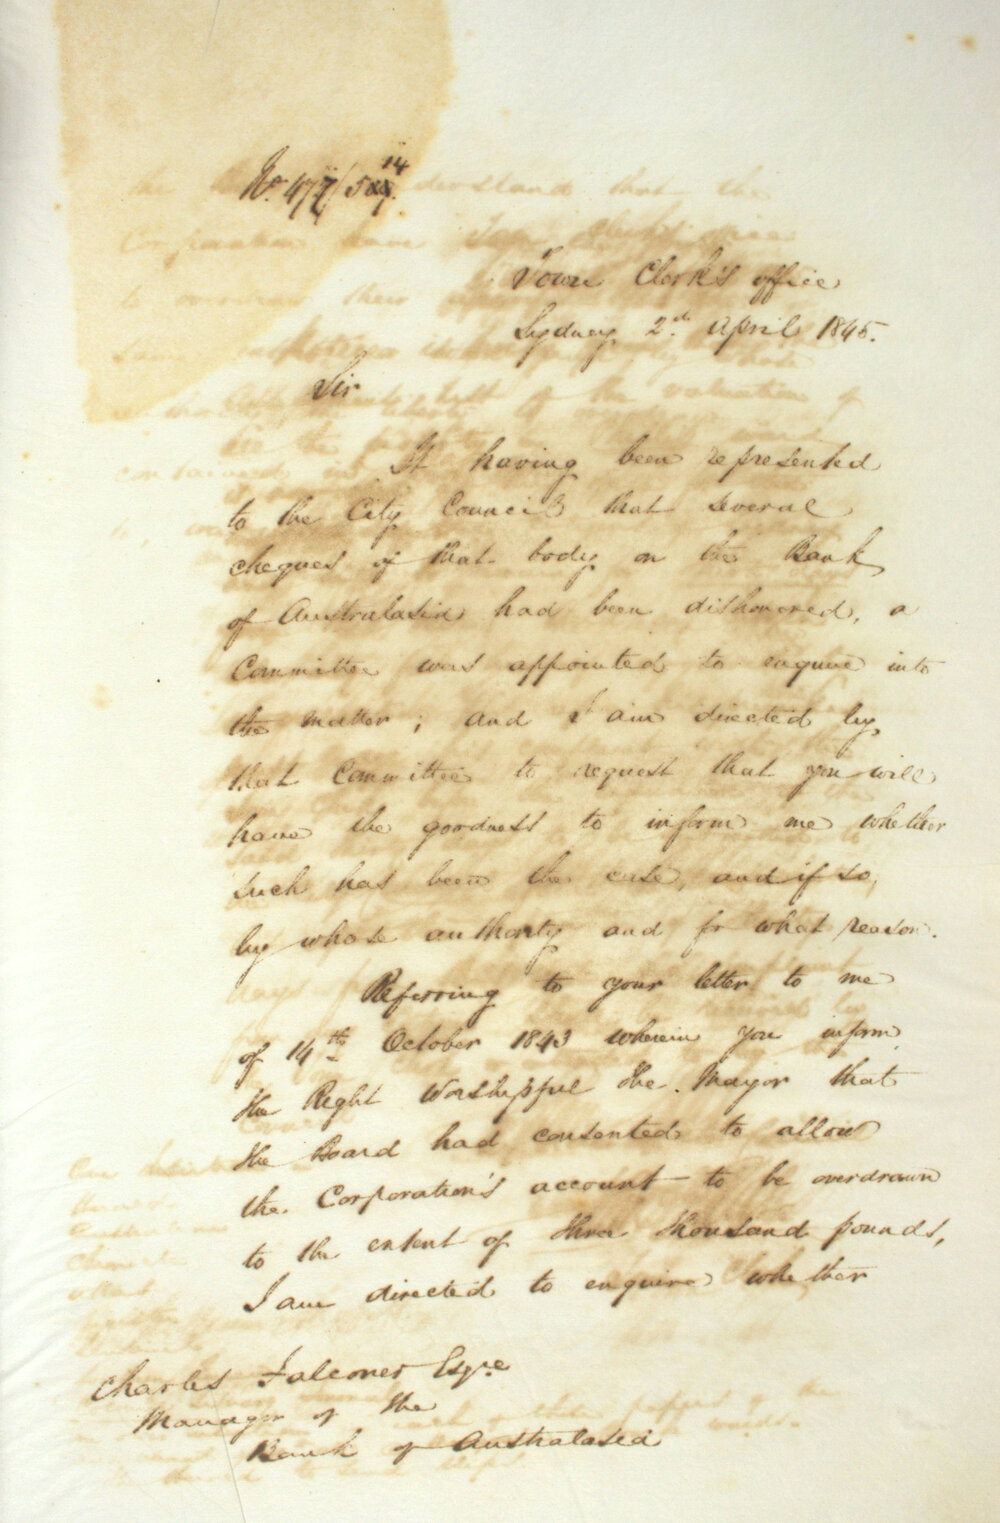 Town Clerk's office
Sydney 2d. April 1845.
Sir
It having been represented
to the City Council that several
cheques of that body on the Bank
of Australasia had been dishonored, a
Committee was appointed to enquire into
the matter; and I am directed by
that Committee to request that you will
have the goodness to inform me whether
such has been the case, and if so,
by whose authority and for what reason.
Referring to your letter to me
of 14th October 1843 wherein you inform
the Right Worshipful the Mayor that
the Board had consented to allow
the Corporation's account to be overdrawn
to the extent of three thousand pounds,
I am directed to enquire whether
Charles Falconer Esqre
Manager of the
Bank of Australasia